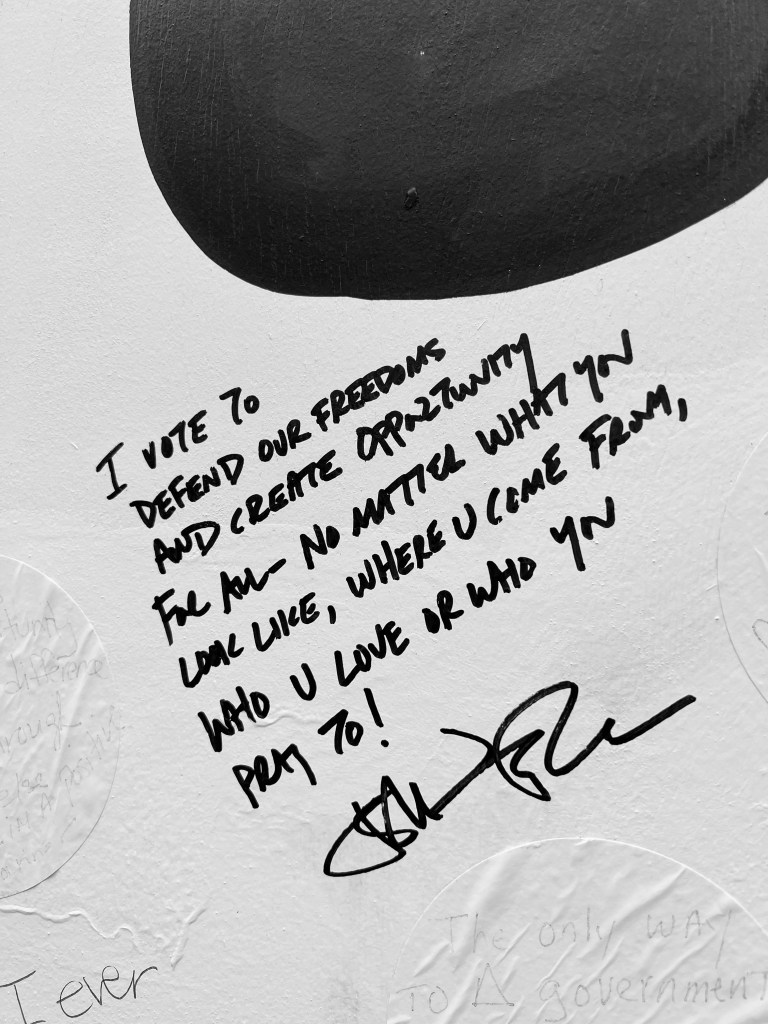 I VOTE TO
DEFEND OUR FREEDOMS
AND CREATE OPPORTUNITY
FOR ALL - NO MATTER WHAT YOU
LOOK LIKE, WHERE U COME FROM,
WHO U LOVE OR WHO YOU
PRAY TO!
different
in A positive
I ever
The only way
To Δ government